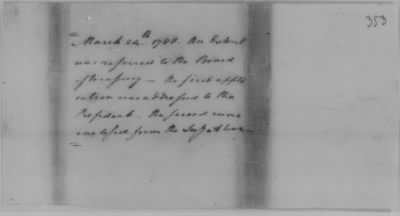 353
March 24th. 1788. An Extract
was referred to the Board
of Treasury — the first appli
cation was addressed to the
President — the second
enclosed from the